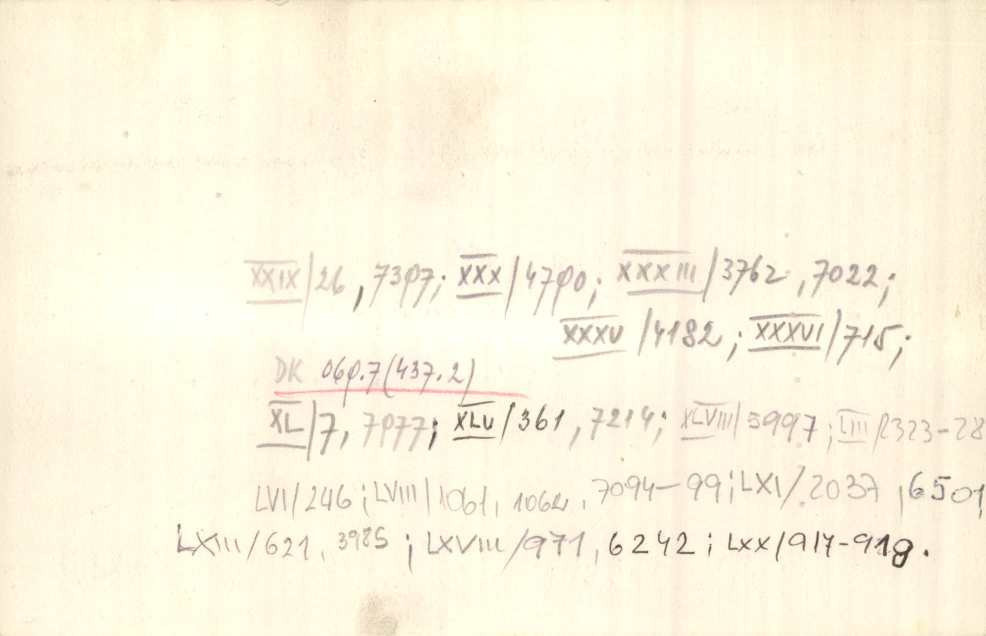 XXIX/26, 7307; XXX/4700; XXXIII/3762, 7022;
XXXV/4182; XXXVI/715;
DK 060.7(437.2)
XL/7, 7077; XLV/361, 7214; XLVIII/3997; LIII/2323-28
LVI/246; LVIII/1061, 1062, 7094-99; LXI/2037, 6501,
LXIII/621, 3985; LXVIII/971, 6242; LXX/917-919.